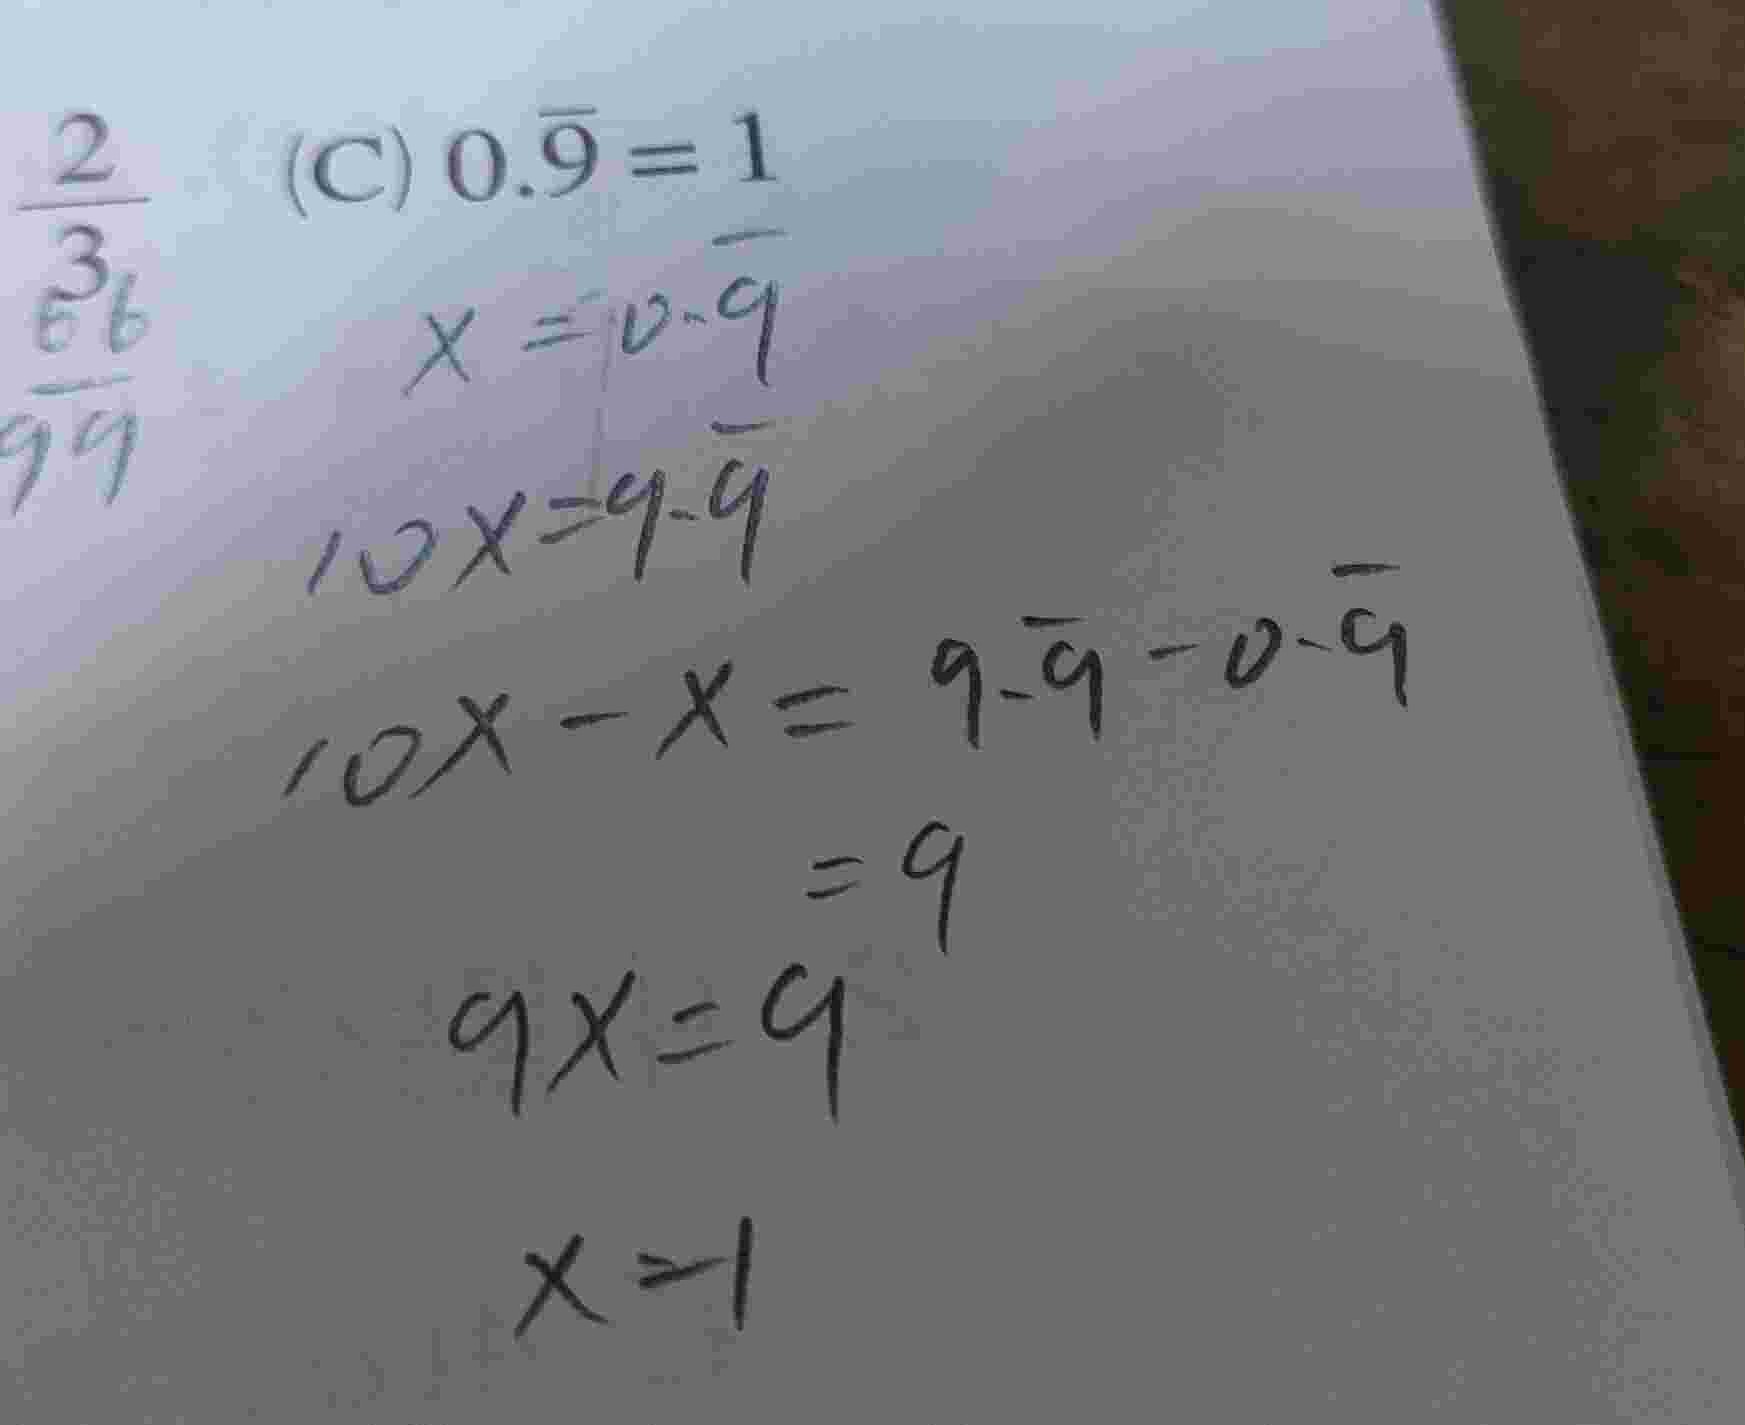 2/3
66/99
(C) 0.9̅ = 1
x = 0.9̅
10x = 9.9̅
10x - x = 9.9̅ - 0.9̅
= 9
9x = 9
x = 1